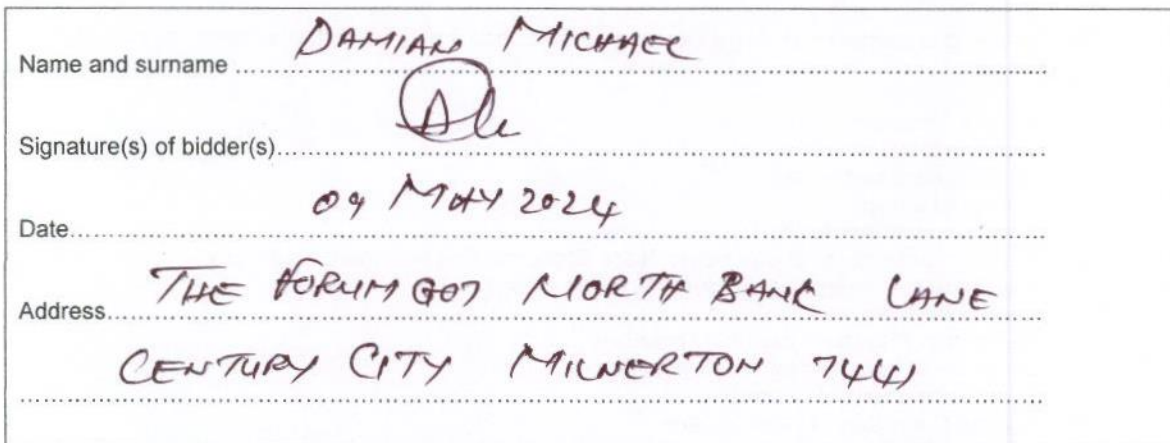 Name and surname ........ DAMIAN MICHAEL
Signature(s) of bidder(s)........
Date........ 09 MAY 2024
Address........ THE FORUM G07 NORTH BANK LANE
CENTURY CITY MILNERTON 7441